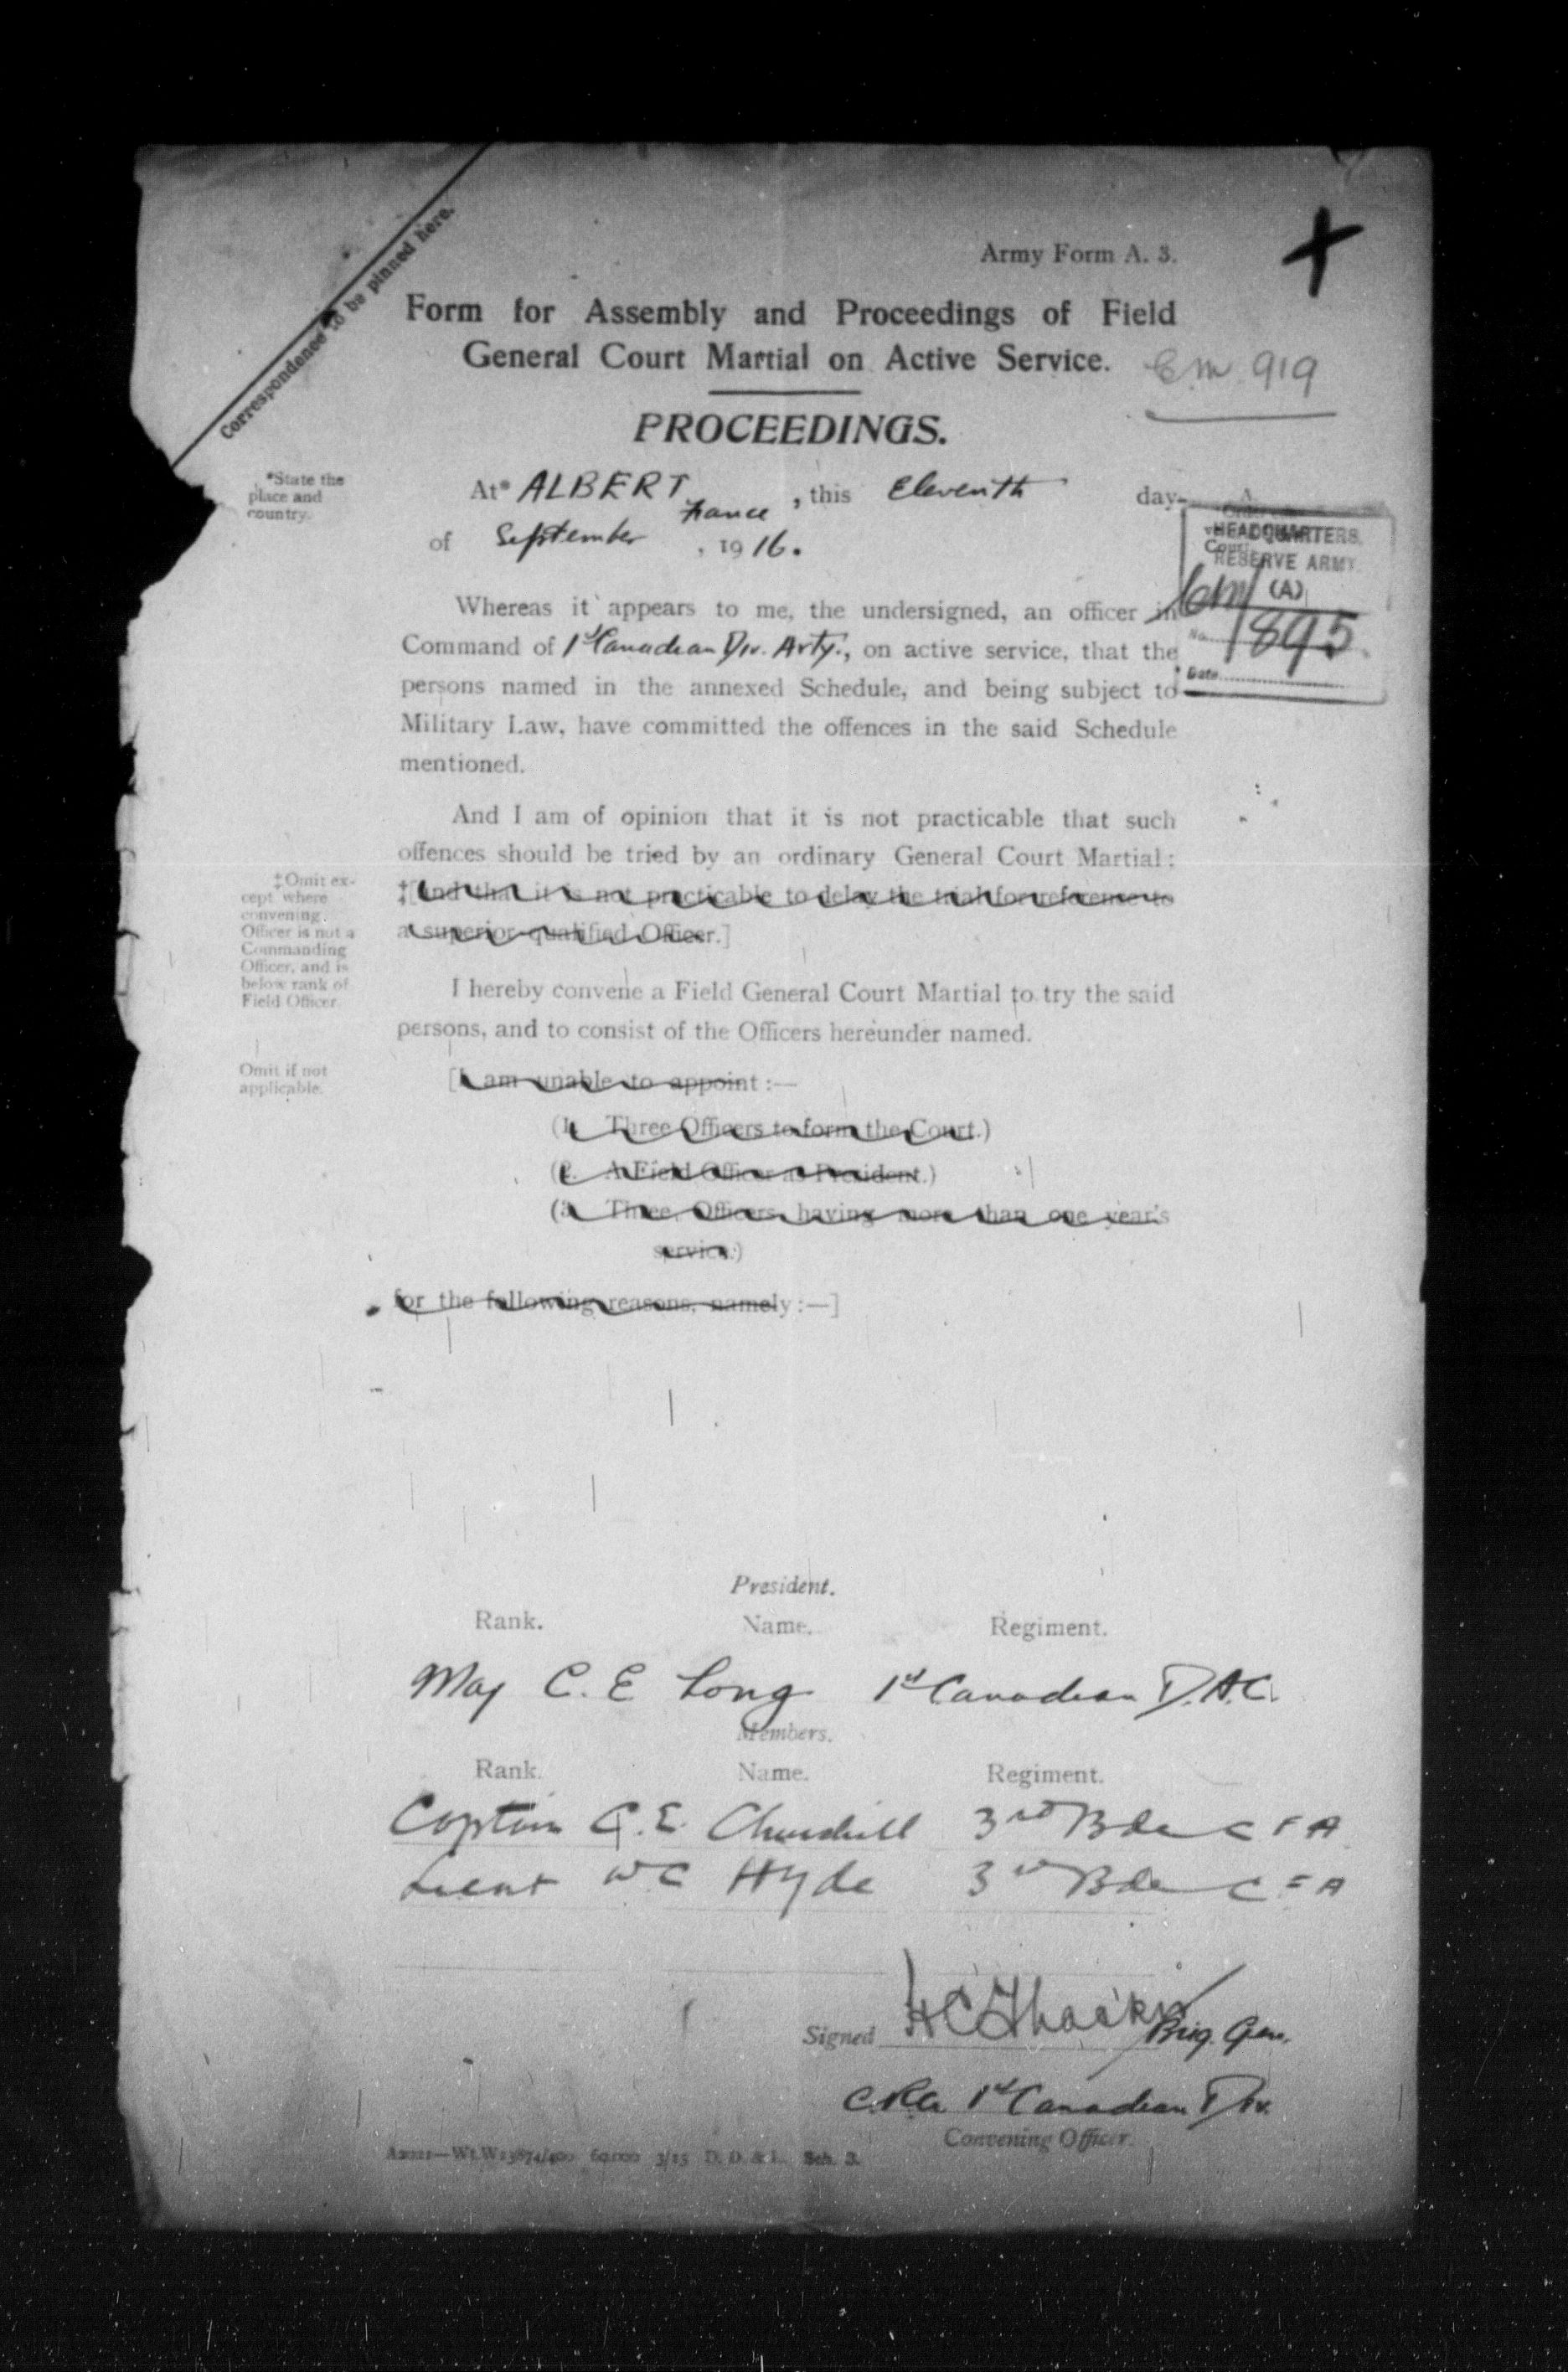 Correspondence to be pinned here.
Army Form A. 3.
Form for Assembly and Proceedings of Field
General Court Martial on Active Service.
919
PROCEEDINGS.
*State the
place and
country.
At* ALBERT France, this Eleventh day
of September, 1916.
HEADQUARTERS.
RESERVE ARMY
(A)
No. 1895
Date
Whereas it appears to me, the undersigned, an officer in
Command of 1st Canadian Div. Arty., on active service, that the
persons named in the annexed Schedule, and being subject to
Military Law, have committed the offences in the said Schedule
mentioned.
And I am of opinion that it is not practicable that such
offences should be tried by an ordinary General Court Martial:
‡Omit ex-
cept where
convening
Officer is not a
Commanding
Officer, and is
below rank of
Field Officer
‡[and that it is not practicable to delay the trial for reference to
a superior qualified Officer.]
I hereby convene a Field General Court Martial to try the said
persons, and to consist of the Officers hereunder named.
Omit if not
applicable.
[I am unable to appoint:—
(1. Three Officers to form the Court.)
(2. A Field Officer as President.)
(3. Three Officers having more than one year's
service.)
for the following reasons, namely:—]
President.
Rank. Name. Regiment.
Maj C. E Long 1st Canadian D.A.C.
Members.
Rank. Name. Regiment.
Captain C.E. Churchill 3rd Bde CFA
Lieut WC Hyde 3rd Bde CFA
Signed HC Thacker Brig. Gen.
CRA 1st Canadian Div.
Convening Officer.
60,000 3/15 D. D. & L. Sch. 3.